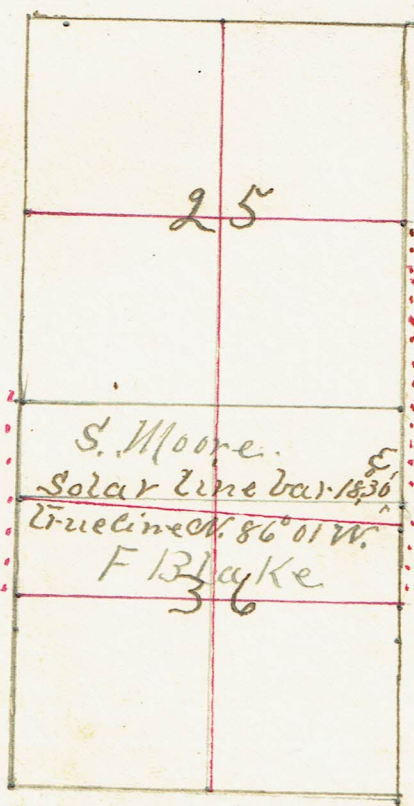 25
S. Moore.
E
Solar line var. 18,36
True line N. 86° 01 W.
F Blake
36